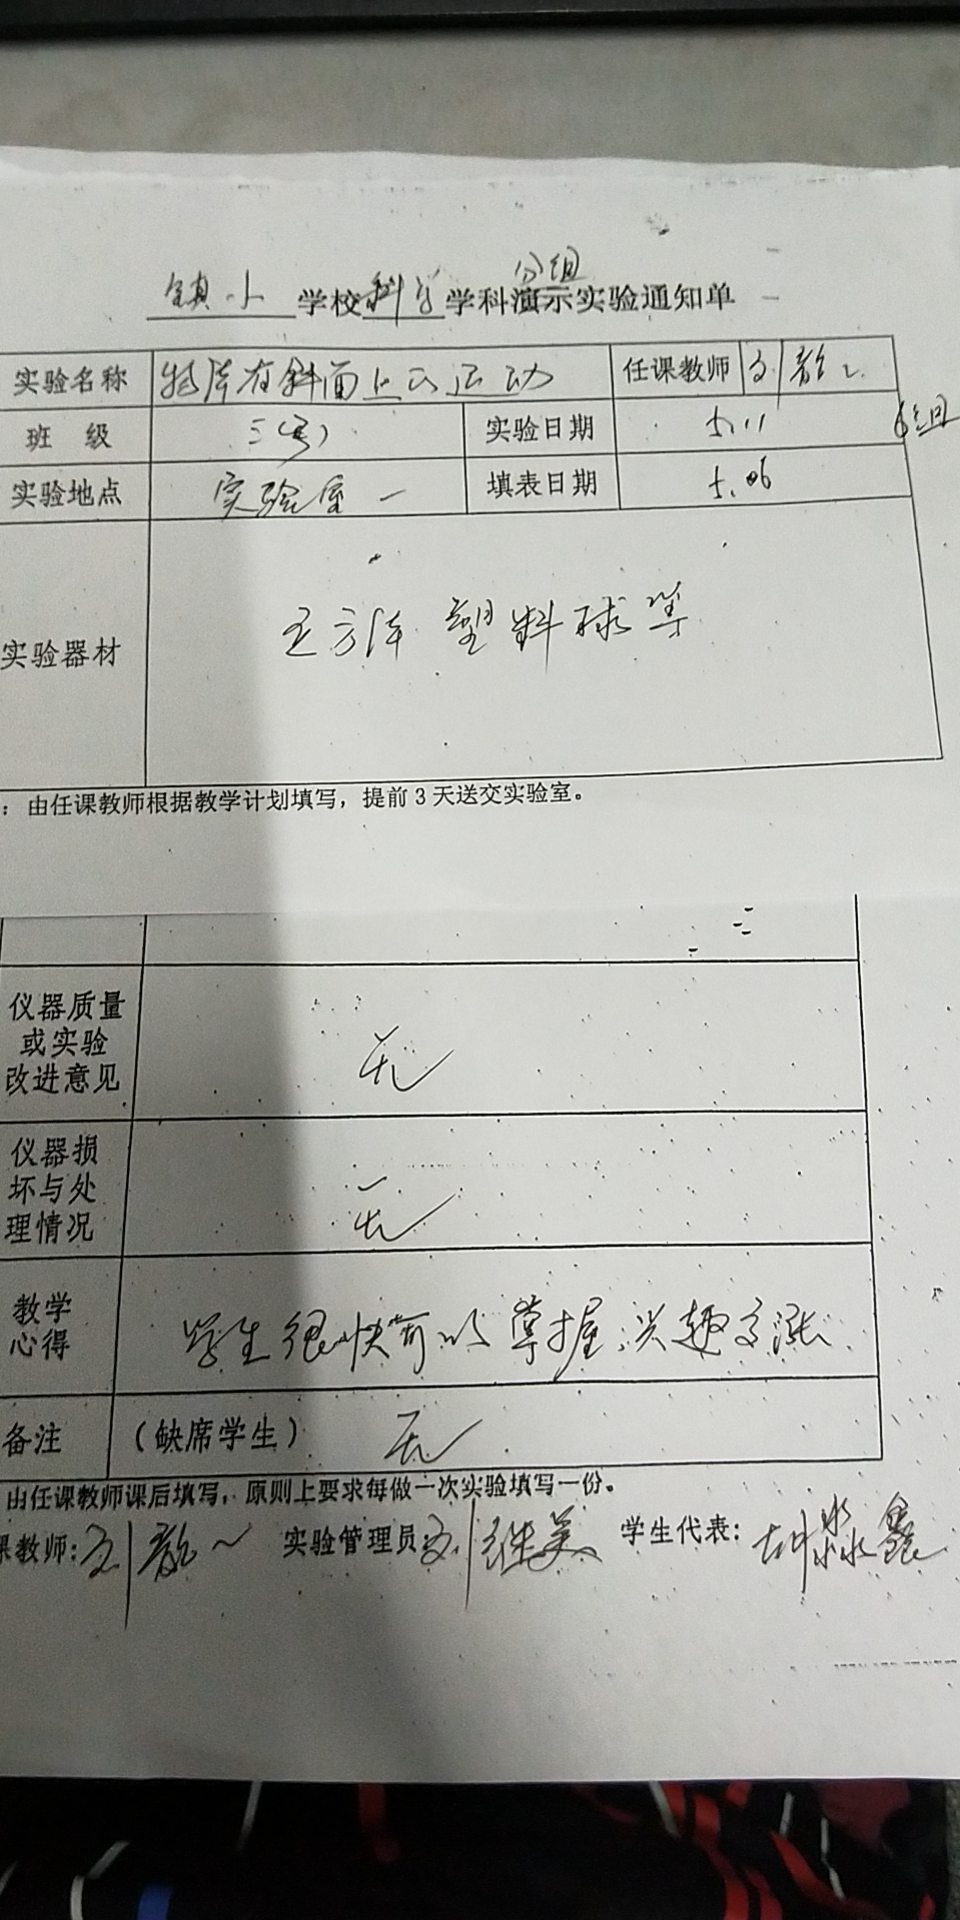 镇小 学校科学学科演示实验通知单
分组
实验名称 物体在斜面上的运动 任课教师 刘
班 级 三 实验日期 5.11
6组
实验地点 实验室一 填表日期 5.06
实验器材 正方体 塑料球等
：由任课教师根据教学计划填写，提前3天送交实验室。
仪器质量
或实验
改进意见 无
仪器损
坏与处
理情况 无
教学
心得 学生很快可以掌握，兴趣高涨
备注 （缺席学生） 无
由任课教师课后填写，原则上要求每做一次实验填写一份。
课教师：刘 实验管理员 刘继美 学生代表：胡淼鑫